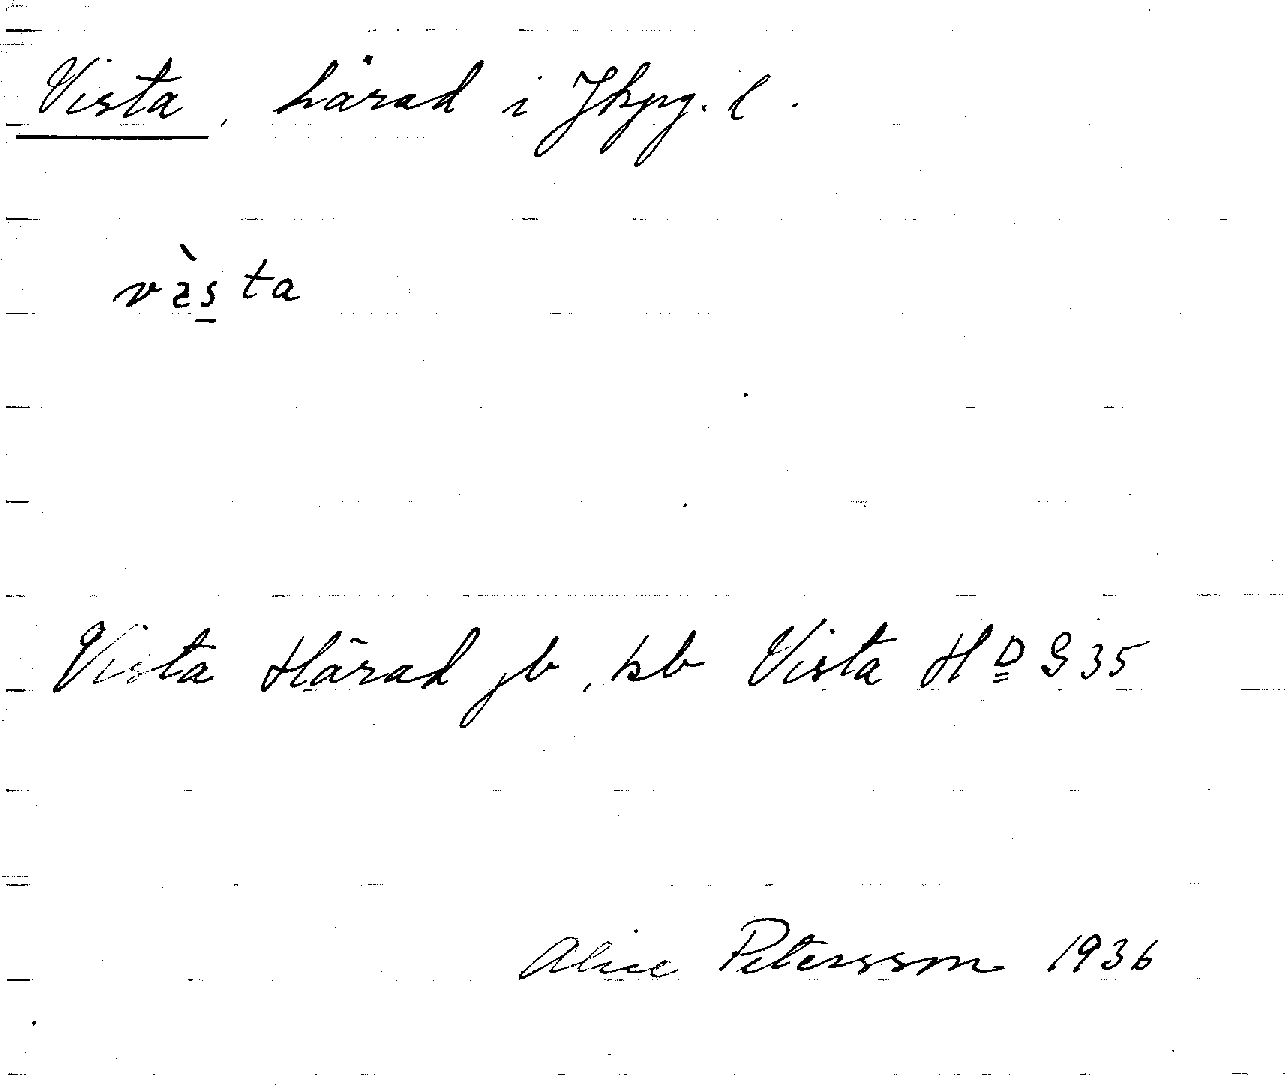 Vista, härad i Jkpg. l.
vista
Vista Härad jb, kb Vista HD G 35
Alice Petersson 1936